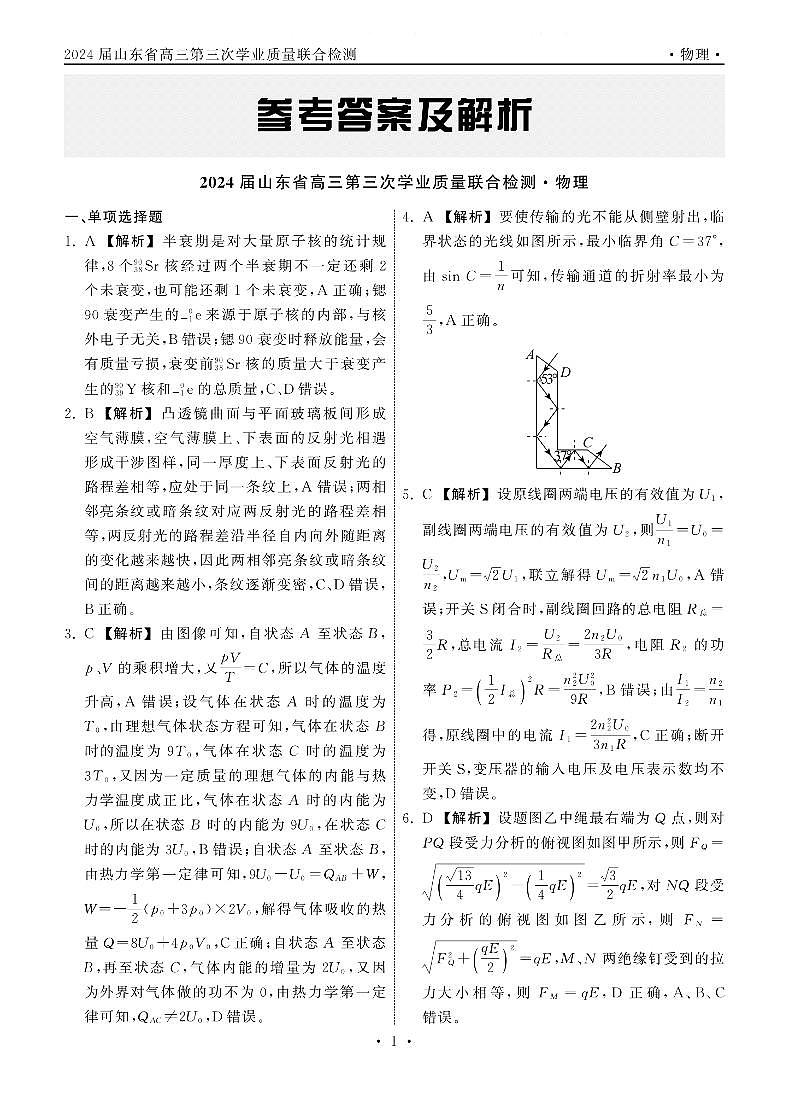 2024 届山东省高三第三次学业质量联合检测 ·物理·
参考答案及解析
2024 届山东省高三第三次学业质量联合检测·物理
一、单项选择题
1. A 【解析】半衰期是对大量原子核的统计规
律,8 个⁹⁰₃₈Sr 核经过两个半衰期不一定还剩 2
个未衰变,也可能还剩 1 个未衰变,A 正确;锶
90 衰变产生的⁰₋₁e 来源于原子核的内部,与核
外电子无关,B 错误;锶 90 衰变时释放能量,会
有质量亏损,衰变前⁹⁰₃₈Sr 核的质量大于衰变产
生的⁹⁰₃₉Y 核和⁰₋₁e 的总质量,C、D 错误。
2. B 【解析】凸透镜曲面与平面玻璃板间形成
空气薄膜,空气薄膜上、下表面的反射光相遇
形成干涉图样,同一厚度上、下表面反射光的
路程差相等,应处于同一条纹上,A 错误;两相
邻亮条纹或暗条纹对应两反射光的路程差相
等,两反射光的路程差沿半径自内向外随距离
的变化越来越快,因此两相邻亮条纹或暗条纹
间的距离越来越小,条纹逐渐变密,C、D 错误,
B 正确。
3. C 【解析】由图像可知,自状态 A 至状态 B,
p、V 的乘积增大,又pV/T=C,所以气体的温度
升高,A 错误;设气体在状态 A 时的温度为
T₀,由理想气体状态方程可知,气体在状态 B
时的温度为 9T₀,气体在状态 C 时的温度为
3T₀,又因为一定质量的理想气体的内能与热
力学温度成正比,气体在状态 A 时的内能为
U₀,所以在状态 B 时的内能为 9U₀,在状态 C
时的内能为 3U₀,B 错误;自状态 A 至状态 B,
由热力学第一定律可知,9U₀−U₀=Q_AB+W,
W=−1/2(p₀+3p₀)×2V₀,解得气体吸收的热
量 Q=8U₀+4p₀V₀,C 正确;自状态 A 至状态
B,再至状态 C,气体内能的增量为 2U₀,又因
为外界对气体做的功不为 0,由热力学第一定
律可知,Q_AC≠2U₀,D 错误。
4. A 【解析】要使传输的光不能从侧壁射出,临
界状态的光线如图所示,最小临界角 C=37°,
由 sin C=1/n可知,传输通道的折射率最小为
5/3,A 正确。
A
D
53°
C
37°
B
5. C 【解析】设原线圈两端电压的有效值为 U₁,
副线圈两端电压的有效值为 U₂,则U₁/n₁=U₀=
U₂/n₂,Uₘ=√2U₁,联立解得 Uₘ=√2n₁U₀,A 错
误;开关 S 闭合时,副线圈回路的总电阻 R总=
3/2R,总电流 I₂=U₂/R总=2n₂U₀/3R,电阻 R₂ 的功
率 P₂=(1/2I总)²R=n₂²U₀²/9R,B 错误;由I₁/I₂=n₂/n₁
得,原线圈中的电流 I₁=2n₂²U₀/3n₁R,C 正确;断开
开关 S,变压器的输入电压及电压表示数均不
变,D 错误。
6. D 【解析】设题图乙中绳最右端为 Q 点,则对
PQ 段受力分析的俯视图如图甲所示,则 F_Q=
√((√13/4qE)²−(1/4qE)²)=√3/2qE,对 NQ 段受
力分析的俯视图如图乙所示,则 F_N=
√(F_Q²+(qE/2)²)=qE,M、N 两绝缘钉受到的拉
力大小相等,则 F_M=qE,D 正确,A、B、C
错误。
· 1 ·